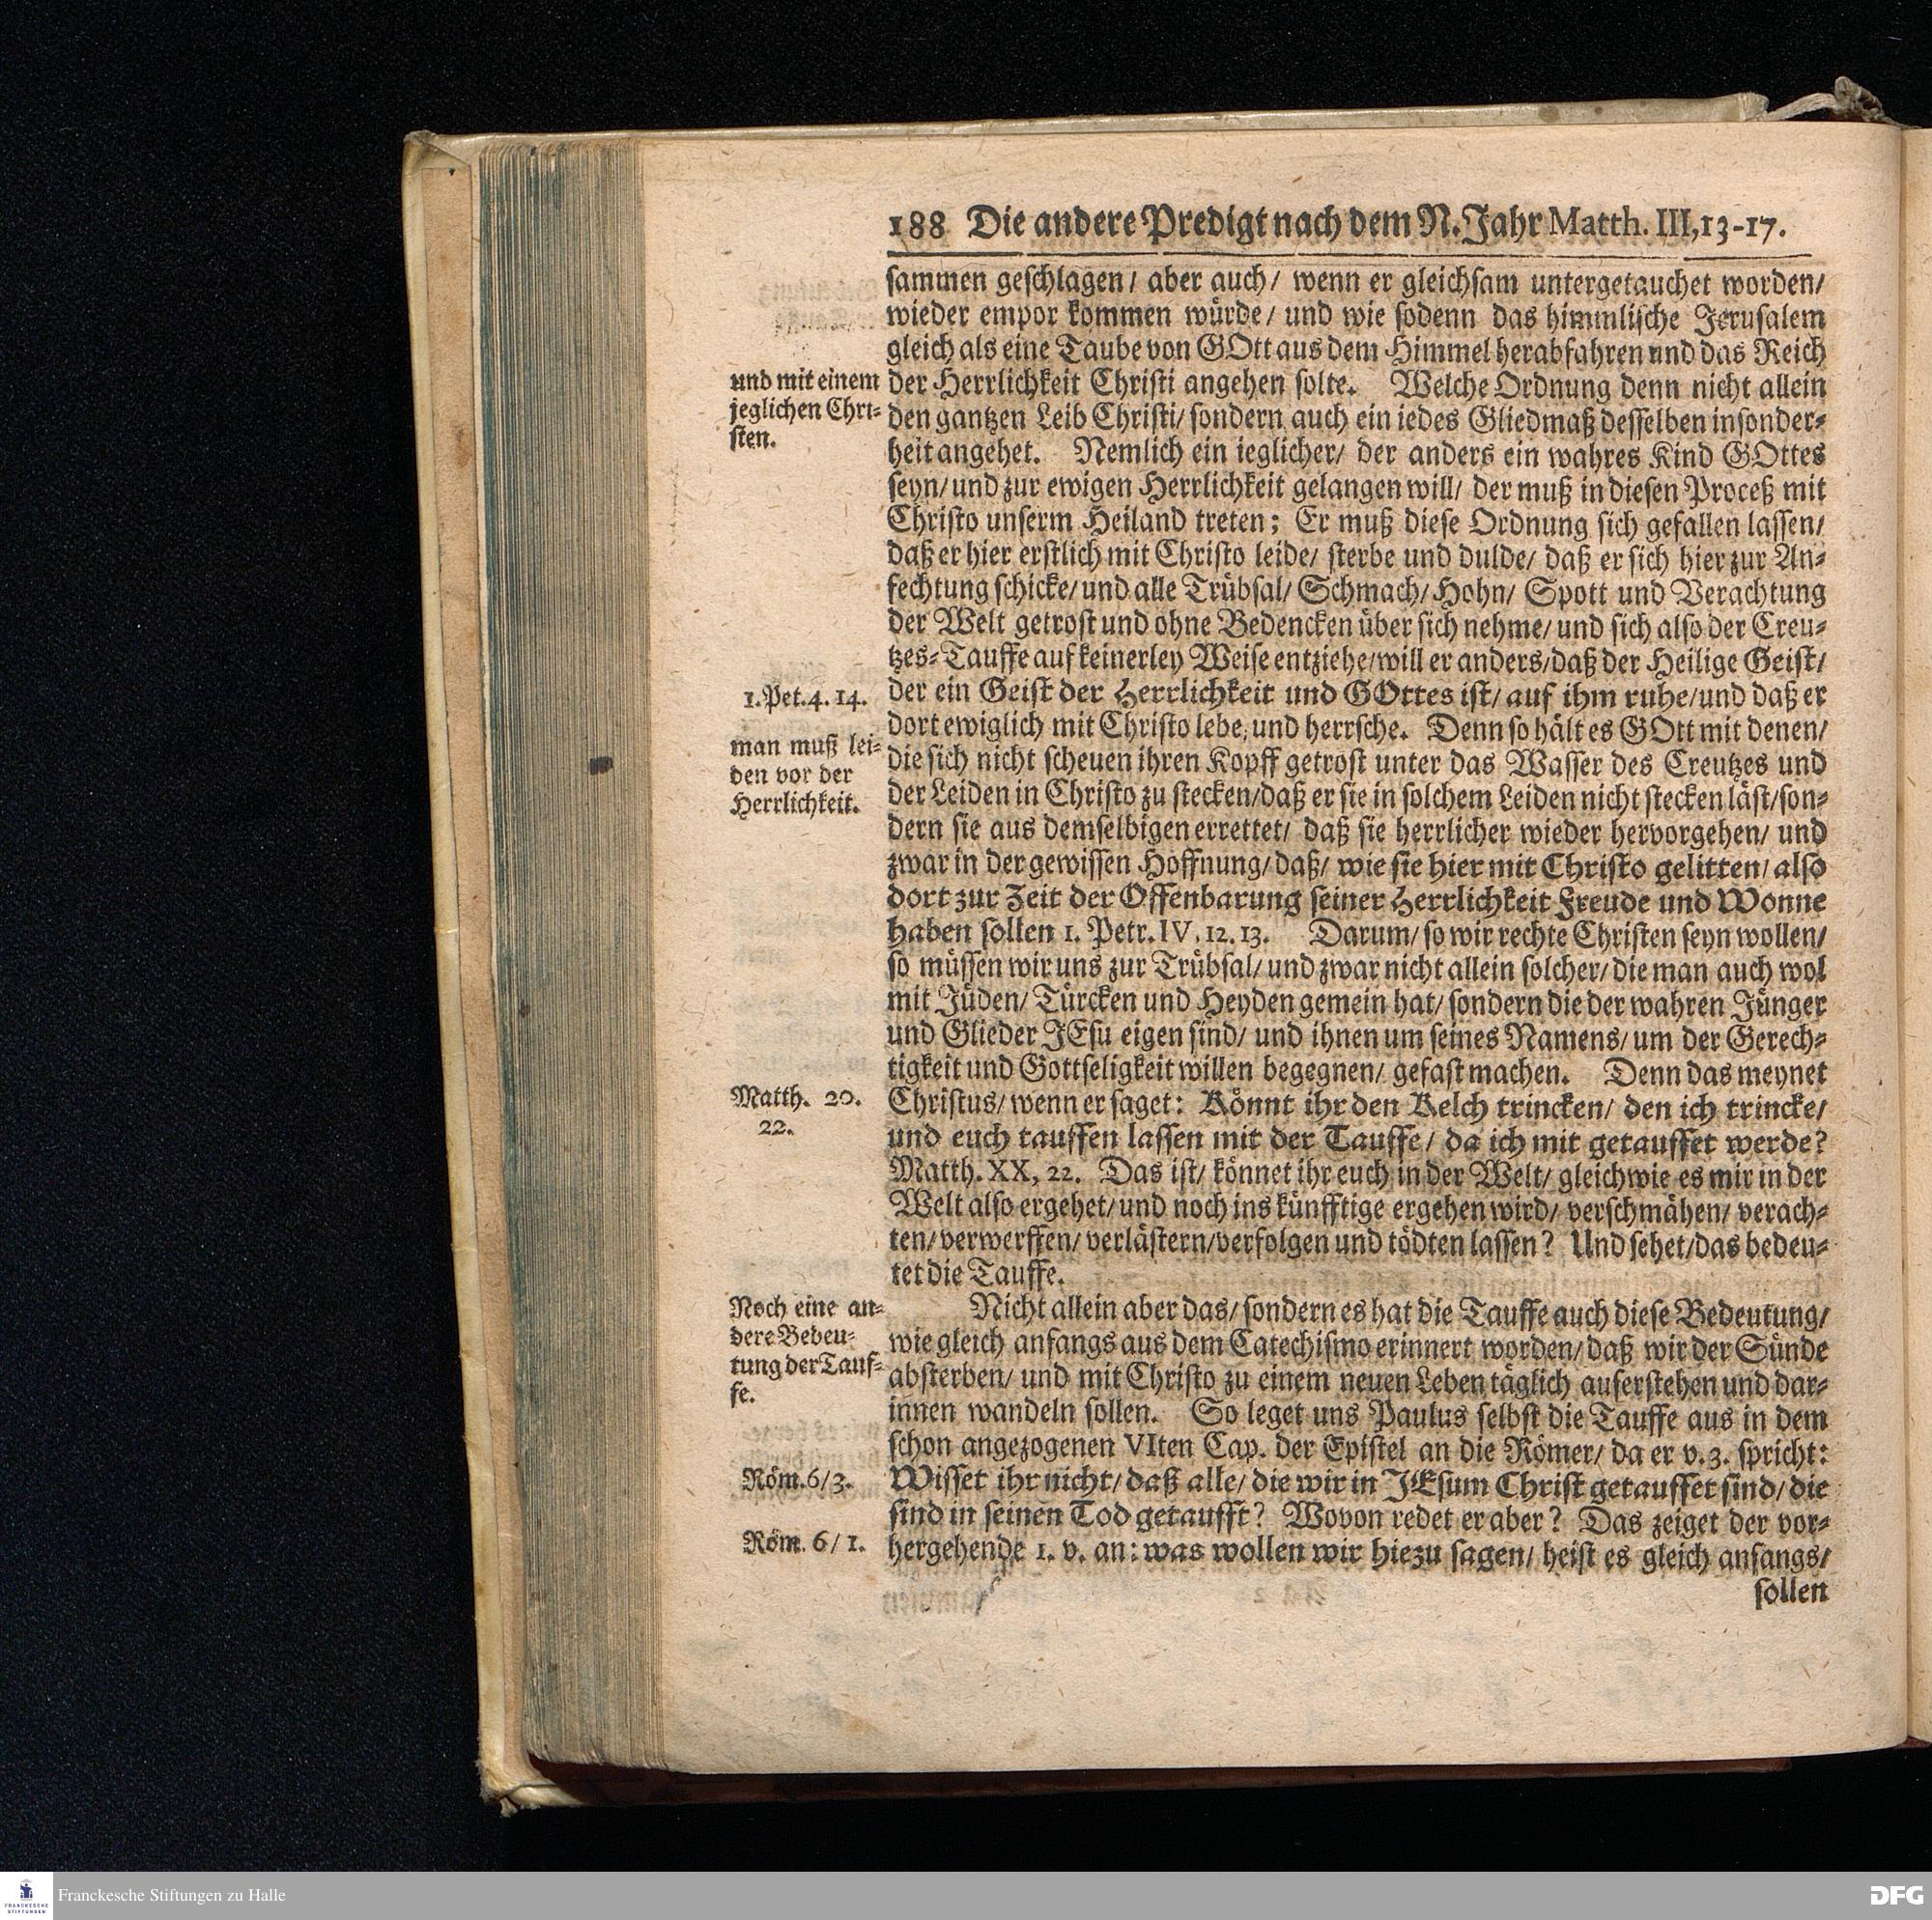 188 Die andere Predigt nach dem N. Jahr Matth. III, 13-17.
sammen geschlagen/ aber auch/ wenn er gleichsam untergetauchet worden/
wieder empor kommen würde/ und wie sodenn das himmlische Jerusalem
gleich als eine Taube von GOtt aus dem Himmel herabfahren und das Reich
der Herrlichkeit Christi angehen solte. Welche Ordnung denn nicht allein
den gantzen Leib Christi/ sondern auch ein iedes Gliedmaß desselben insonder-
heit angehet. Nemlich ein ieglicher/ der anders ein wahres Kind GOttes
seyn/ und zur ewigen Herrlichkeit gelangen will/ der muß in diesen Proceß mit
Christo unserm Heiland treten; Er muß diese Ordnung sich gefallen lassen/
daß er hier erstlich mit Christo leide/ sterbe und dulde/ daß er sich hier zur An-
fechtung schicke/ und alle Trübsal/ Schmach/ Hohn/ Spott und Verachtung
der Welt getrost und ohne Bedencken über sich nehme/ und sich also der Creu-
tzes-Tauffe auf keinerley Weise entziehe/ will er anders/ daß der Heilige Geist/
der ein Geist der Herrlichkeit und GOttes ist/ auf ihm ruhe/ und daß er
dort ewiglich mit Christo lebe, und herrsche. Denn so hält es GOtt mit denen/
die sich nicht scheuen ihren Kopff getrost unter das Wasser des Creutzes und
der Leiden in Christo zu stecken/ daß er sie in solchem Leiden nicht stecken läst/ son-
dern sie aus demselbigen errettet/ daß sie herrlicher wieder hervorgehen/ und
zwar in der gewissen Hoffnung/ daß/ wie sie hier mit Christo gelitten/ also
dort zur Zeit der Offenbarung seiner Herrlichkeit Freude und Wonne
haben sollen 1. Petr. IV. 12. 13. Darum/ so wir rechte Christen seyn wollen/
so müssen wir uns zur Trübsal/ und zwar nicht allein solcher/ die man auch wol
mit Jüden/ Türcken und Heyden gemein hat/ sondern die der wahren Jünger
und Glieder JEsu eigen sind/ und ihnen um seines Namens/ um der Gerech-
tigkeit und Gottseligkeit willen begegnen/ gefast machen. Denn das meynet
Christus/ wenn er saget: Könnt ihr den Kelch trincken/ den ich trincke/
und euch tauffen lassen mit der Tauffe/ da ich mit getauffet werde?
Matth. XX, 22. Das ist/ könnet ihr euch in der Welt/ gleichwie es mir in der
Welt also ergehet/ und noch ins künfftige ergehen wird/ verschmähen/ verach-
ten/ verwerffen/ verlästern/ verfolgen und tödten lassen? Und sehet/ das bedeu-
tet die Tauffe.
Nicht allein aber das/ sondern es hat die Tauffe auch diese Bedeutung/
wie gleich anfangs aus dem Catechismo erinnert worden/ daß wir der Sünde
absterben/ und mit Christo zu einem neuen Leben täglich auferstehen und dar-
innen wandeln sollen. So leget uns Paulus selbst die Tauffe aus in dem
schon angezogenen VIten Cap. der Epistel an die Römer/ da er v. 3. spricht:
Wisset ihr nicht/ daß alle/ die wir in JEsum Christ getauffet sind/ die
sind in seinen Tod getaufft? Wovon redet er aber? Das zeiget der vor-
hergehende 1. v. an: was wollen wir hiezu sagen/ heist es gleich anfangs/
sollen
und mit einem
jeglichen Chri-
sten.
1. Pet. 4. 14.
man muß lei-
den vor der
Herrlichkeit.
Matth. 20.
22.
Noch eine an-
dere Bedeu-
tung der Tauf-
fe.
Röm. 6/ 3.
Röm. 6/ 1.
FRANCKESCHE
STIFTUNGEN
Franckesche Stiftungen zu Halle
DFG